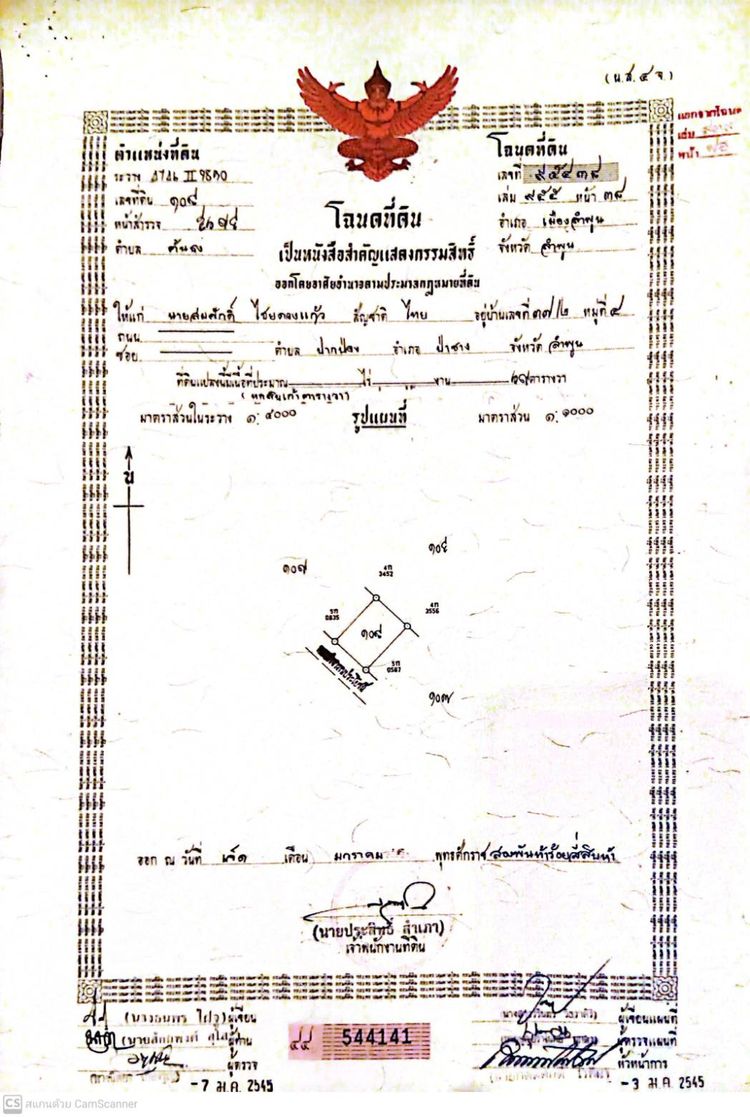 (น.ส.๔ จ.)
ตำแหน่งที่ดิน
ระวาง
เลขที่ดิน ๑๐๘
หน้าสำรวจ
ตำบล ต้นธง
โฉนดที่ดิน
เลขที่ ๙๕๔๓๘
เล่ม ๙๕๕ หน้า ๓๘
อำเภอ เมืองลำพูน
จังหวัด ลำพูน
แยกจากโฉนด
เล่ม
หน้า
โฉนดที่ดิน
เป็นหนังสือสำคัญแสดงกรรมสิทธิ์
ออกโดยอาศัยอำนาจตามประมวลกฎหมายที่ดิน
ให้แก่ นายสมศักดิ์ สัญชาติ ไทย อยู่บ้านเลขที่ ๓๗/๒ หมู่ที่ ๔
ถนน
ซอย ตำบล ปากบ่อง อำเภอ ป่าซาง จังหวัด ลำพูน
ที่ดินแปลงนี้มีเนื้อที่ประมาณ ไร่ งาน ๖๙ ตารางวา
(หกสิบเก้าตารางวา)
มาตราส่วนในระวาง ๑:๔๐๐๐ รูปแผนที่ มาตราส่วน ๑:๑๐๐๐
น
๑๐๗
4ท
3452
5ท
0835
๑๐๘
4ท
3556
5ท
0587
๑๐๗
ออก ณ วันที่ เจ็ด เดือน มกราคม พุทธศักราช สองพันห้าร้อยสี่สิบห้า
(นายประสิทธิ์ สำเภา)
เจ้าพนักงานที่ดิน
ผู้เขียน
ผู้ทาน
ผู้ตรวจ
- 7 ม.ค. 2545
๔๔ 544141
ผู้เขียนแผนที่
ผู้ตรวจแผนที่
หัวหน้าการ
- 3 ม.ค. 2545
CS สแกนด้วย CamScanner